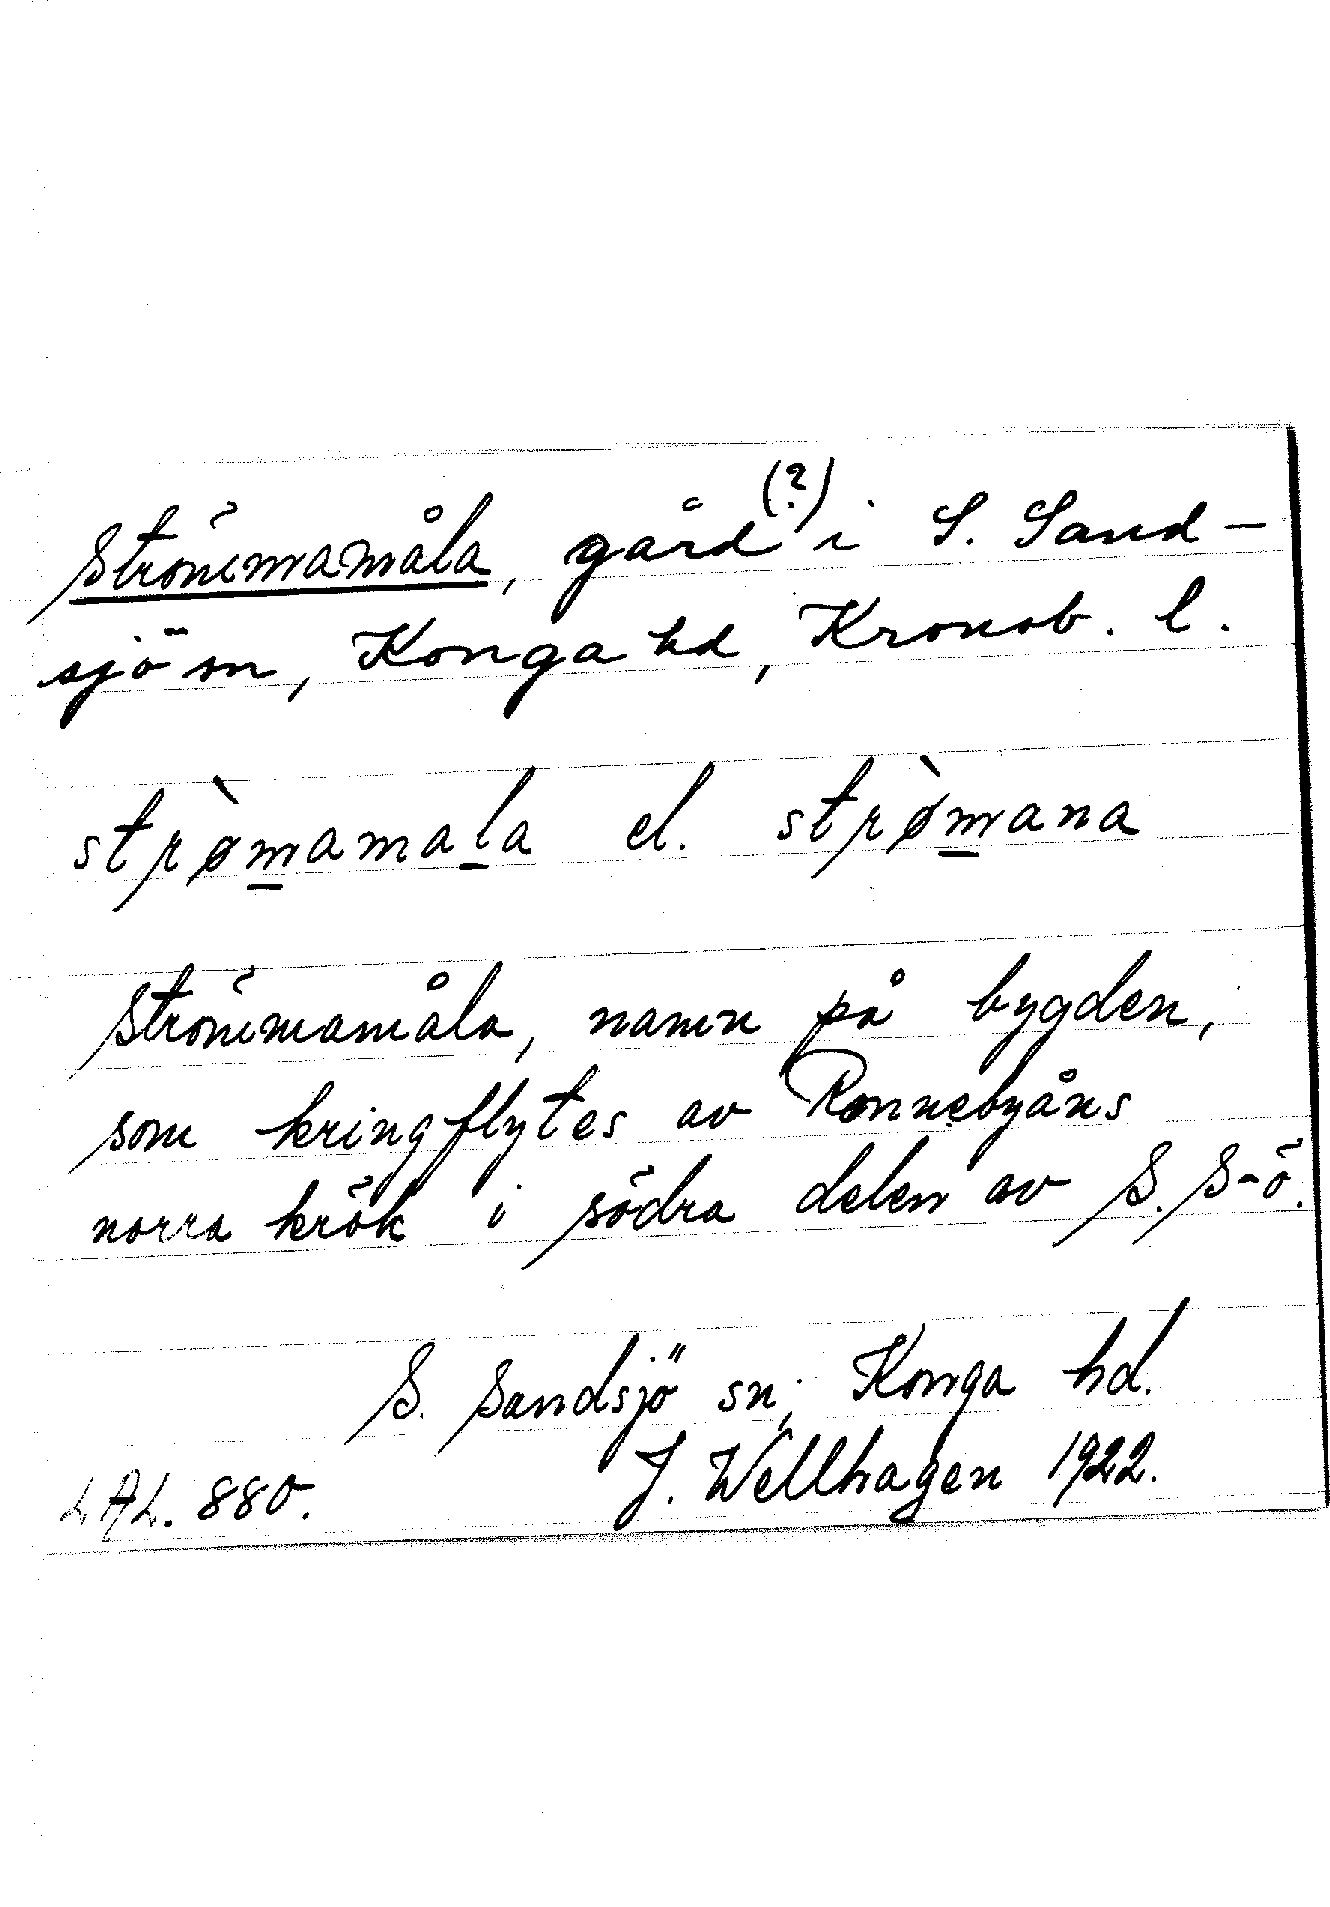 Strömmamåla, gård (?) i S. Sand-
sjö sn, Konga hd, Kronob. l.
strø̀m̲amal̲a el. strø̀m̲ana
Strömmamåla, namn på bygden,
som kringflytes av Ronnebyåns
norra krök i södra delen av S. S-ö.
S. Sandsjö sn; Konga hd.
J. Wellhagen 1922.
LAL. 880.